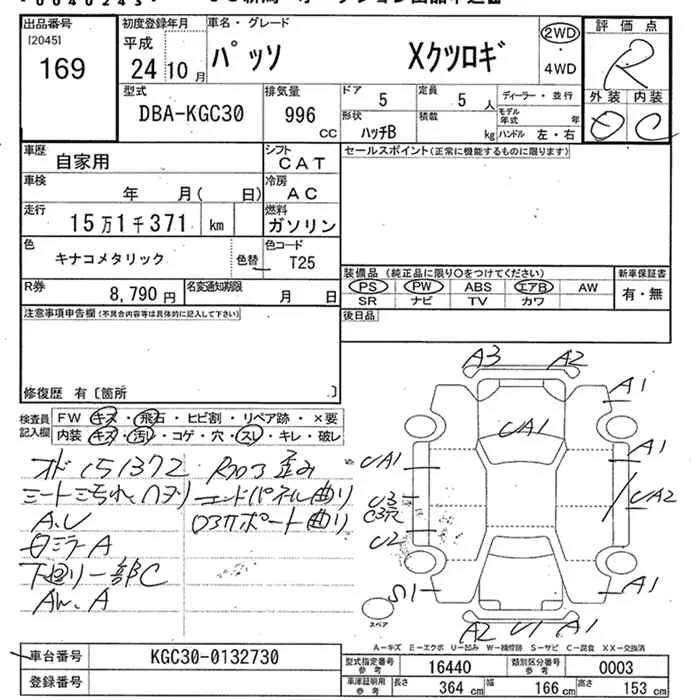 出品番号
[2045]
169
初度登録年月
平成
24 10月
車名・グレード
パッソ Xクツロギ
2WD
・
4WD
評価点
R
外装 内装
D C
型式
DBA-KGC30
排気量
996
cc
ドア
5
定員
5人
ディーラー・並行
モデル年式 年
形状
ハッチB
積載
kg
ハンドル 左・右
車歴
自家用
シフト
CAT
車検
年 月( 日)
冷房
AC
走行
15万1千371 km
燃料
ガソリン
色
キナコメタリック
色替
色コード
T25
R券
8,790円
名変通知期限
月 日
セールスポイント(正常に機能するものに限ります)
装備品(純正品に限り○をつけてください)
PS PW ABS エアB AW
SR ナビ TV カワ
新車保証書
有・無
後日品
注意事項申告欄(不具合内容等は具体的に記入して下さい)
修復歴 有〔箇所 〕
検査員記入欄
FW キズ・飛石・ヒビ割・リペア跡・×要
内装 キズ・汚レ・コゲ・穴・スレ・キレ・破レ
オド151372
シートミ汚れ、ヘタリ
A.U
下廻り一部C
AW.A
エンドパネル曲り
A3 A2
A1
UA1
UA1
A1
U3
C3穴
UA2
U2
S1
A1
A2 U1 A1
スペア
A-キズ E-エクボ U-凹み W-補修跡 S-サビ C-腐食 XX-交換済
車台番号
KGC30-0132730
登録番号
型式指定番号 参考
16440
類別区分番号 参考
0003
車庫証明用 参考
長さ 364cm 幅 166cm 高さ 153cm